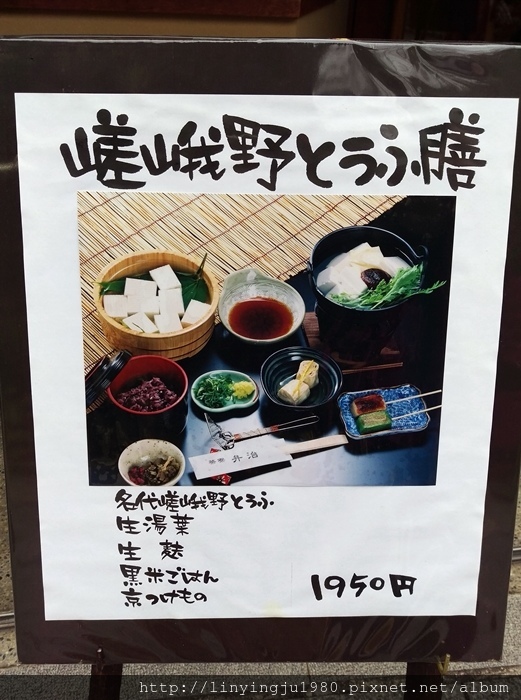 嵯峨野とうふ膳
井治
名代嵯峨野とうふ
生湯葉
生 麩
黒米ごはん
京つけもの
1950円
http://linyingju1980.pixnet.net/album